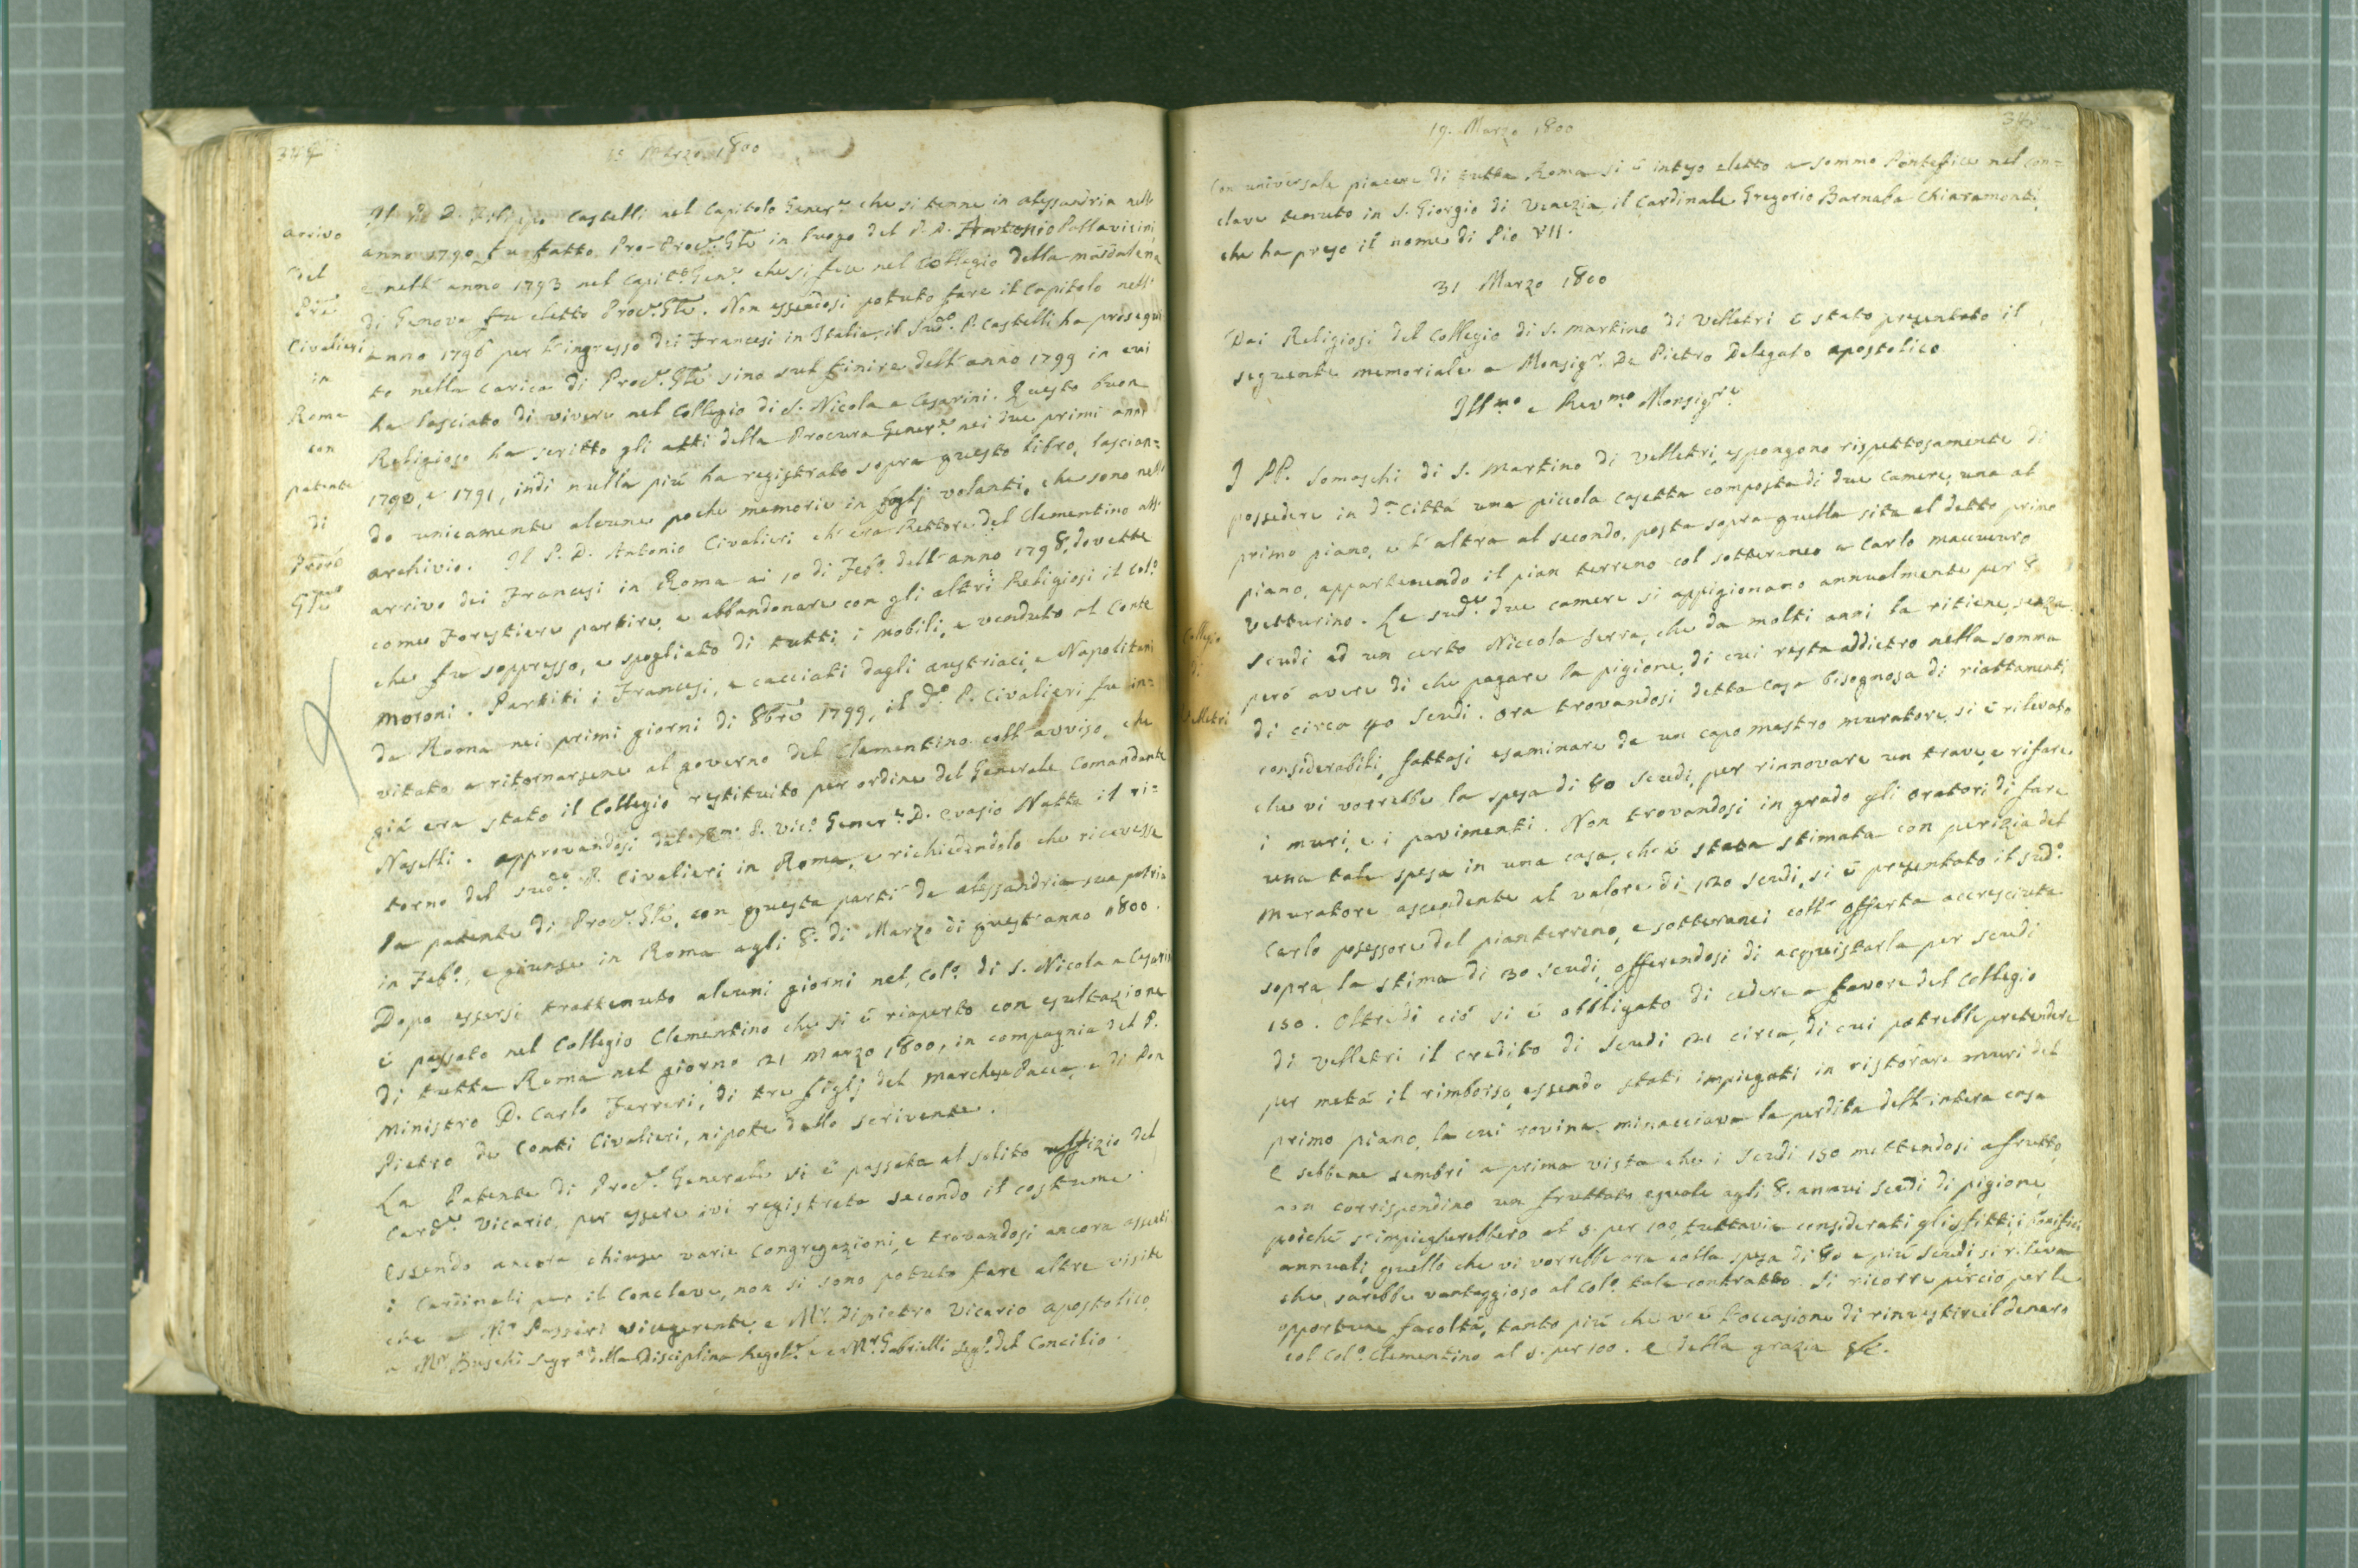 15 Marzo 1800
arrivo
del
Pre
Civalieri
in
Roma
con
patente
di
Procre
Gle
Il P. D. Filippo Castelli nel Capitolo Generle che si tenne in Alessandria nell'
anno 1790 fu fatto Pro-Procr. Gle in luogo del P. D. Antonio Pallavicini,
e nell' anno 1793 nel Capito. Gene. che si fece nel Collegio della Madalena
di Genova fu eletto Procr. Gle. Non essendosi potuto fare il Capitolo nell'
anno 1796 per l'ingresso dei Francesi in Italia, il sudo. P. Castelli ha prosegui
to nella carica di Procr. Gle sino sul finire dell' anno 1799 in cui
ha lasciato di vivere nel Collegio di S. Nicola a Cesarini. Questo buon
Religioso ha scritto gli atti della Procura Generle nei due primi anni
1790, e 1791, indi nulla più ha registrato sopra questo libro, lascian=
do unicamente alcune poche memorie in foglj volanti, che sono nell'
archivio. Il P. D. Antonio Civalieri ch'era Rettore del Clementino all'
arrivo dei Francesi in Roma ai 10 di Febo. dell' anno 1798, dovette
come Forestiere partire, e abbandonare con gli altri Religiosi il Colo.
che fu soppresso, e spogliato di tutti i mobili, e venduto al Conte
Moroni. Partiti i Francesi, e cacciati dagli austriaci, e Napolitani
da Roma nei primi giorni di 8bre 1799, il do. P. Civalieri fu in=
vitato a ritornarsene al governo del Clementino coll'avviso, che
già era stato il Collegio restituito per ordine del Generale Comandante
Naselli. Approvandosi dal Rmo. P. Vico. Generle. D. Evasio Natta il ri=
torno del sudo. P. Civalieri in Roma, e richiedendolo che ricevesse
la patente di Procr. Gle, con questa partì da Alessandria sua patria
in Febo., e giunse in Roma agli 8. di Marzo di quest'anno 1800.
Dopo essersi trattenuto alcuni giorni nel Colo. di S. Nicola a Cesarini
è passato nel Collegio Clementino che si è riaperto con esultazione
di tutta Roma nel giorno 21 Marzo 1800, in compagnia del P.
Ministro D. Carlo Ferreri, di tre figlj del Marchese Pacca, e di Don
Pietro de Conti Civalieri, nipote dello scrivente.
La Patente di Procr. Generale si è passata al solito uffizio del
Cardle Vicario, per essere ivi registrata secondo il costume.
Essendo ancora chiuse varie Congregazioni, e trovandosi ancora assenti
i Cardinali per il Conclave, non si sono potute fare altre visite
che a Mr Passeri vicegerente, e Mr. Dipietro Vicario apostolico,
a Mr. Buschi Segro. della Disciplina Regole e a Mr. Gabrielli Sego. del Concilio.
19. Marzo 1800
Con universale piacere di tutta Roma si è inteso eletto a sommo Pontefice nel con=
clave tenuto in S. Giorgio di Venezia il Cardinale Gregorio Barnaba Chiaramonti,
che ha preso il nome di Pio VII.
31 Marzo 1800
Dai Religiosi del Collegio di S. Martino di Velletri è stato presentato il
seguente memoriale a Monsigr. De Pietro Delegato apostolico
Illmo e Revmo Monsigre
Collegio
di
Velletri
I PP. Somaschi di S. Martino di Velletri, espongono rispettosamente di
possedere in da. Città una piccola casetta composta di due camere, una al
primo piano, e l'altra al secondo, posta sopra quella sita al detto primo
piano, appartenendo il pian terreno col sotteraneo a Carlo Mauuuro
Vetturino. Le sude. due camere si appigionano annualmente per 8
scudi ad un certo Niccola Serra, che da molti anni la ritiene, senza
però avere di che pagare la pigione, di cui resta addietro nella somma
di circa 40 scudi. Ora trovandosi detta casa bisognosa di riattamenti
considerabili, fattasi esaminare da un capo mastro muratore, si è rilevato
che vi vorrebbe la spesa di 80 scudi, per rinnovare un trave, e rifare
i muri, e i pavimenti. Non trovandosi in grado gli Oratori di fare
una tale spesa in una casa, ch'è stata stimata con perizia del
Muratore ascendente al valore di 120 scudi, si è presentato il sudo.
Carlo possessore del pianterreno, e sotteranei coll' offerta accresciuta
sopra la stima di 30 scudi, offerendosi di acquistarla per scudi
150. Oltre di ciò si è obbligato di cedere a favore del Collegio
di Velletri il credito di scudi 21 circa, di cui potrebbe pretendere
per metà il rimborso, essendo stati impiegati in ristorare muri del
primo piano, la cui rovina minacciava la perdita dell'intera casa
E sebbene sembri a prima vista che i scudi 150 mettendosi a frutto,
non corrispondino un fruttato eguale agli 8. annui scudi di pigione,
poichè s'impiegherebbero al 5. per 100, tuttavia considerati gli sfitti, i bonifici
annuali, quello che vi vorrebbe ora colla spesa di 80 e più scudi si rileva
che sarebbe vantaggioso al Colo. tale contratto. Si ricorre perciò per le
opportune facoltà, tanto più che v'è l'occasione di rinvestire il denaro
col Colo. Clementino al 5. per 100. E della grazia &c.